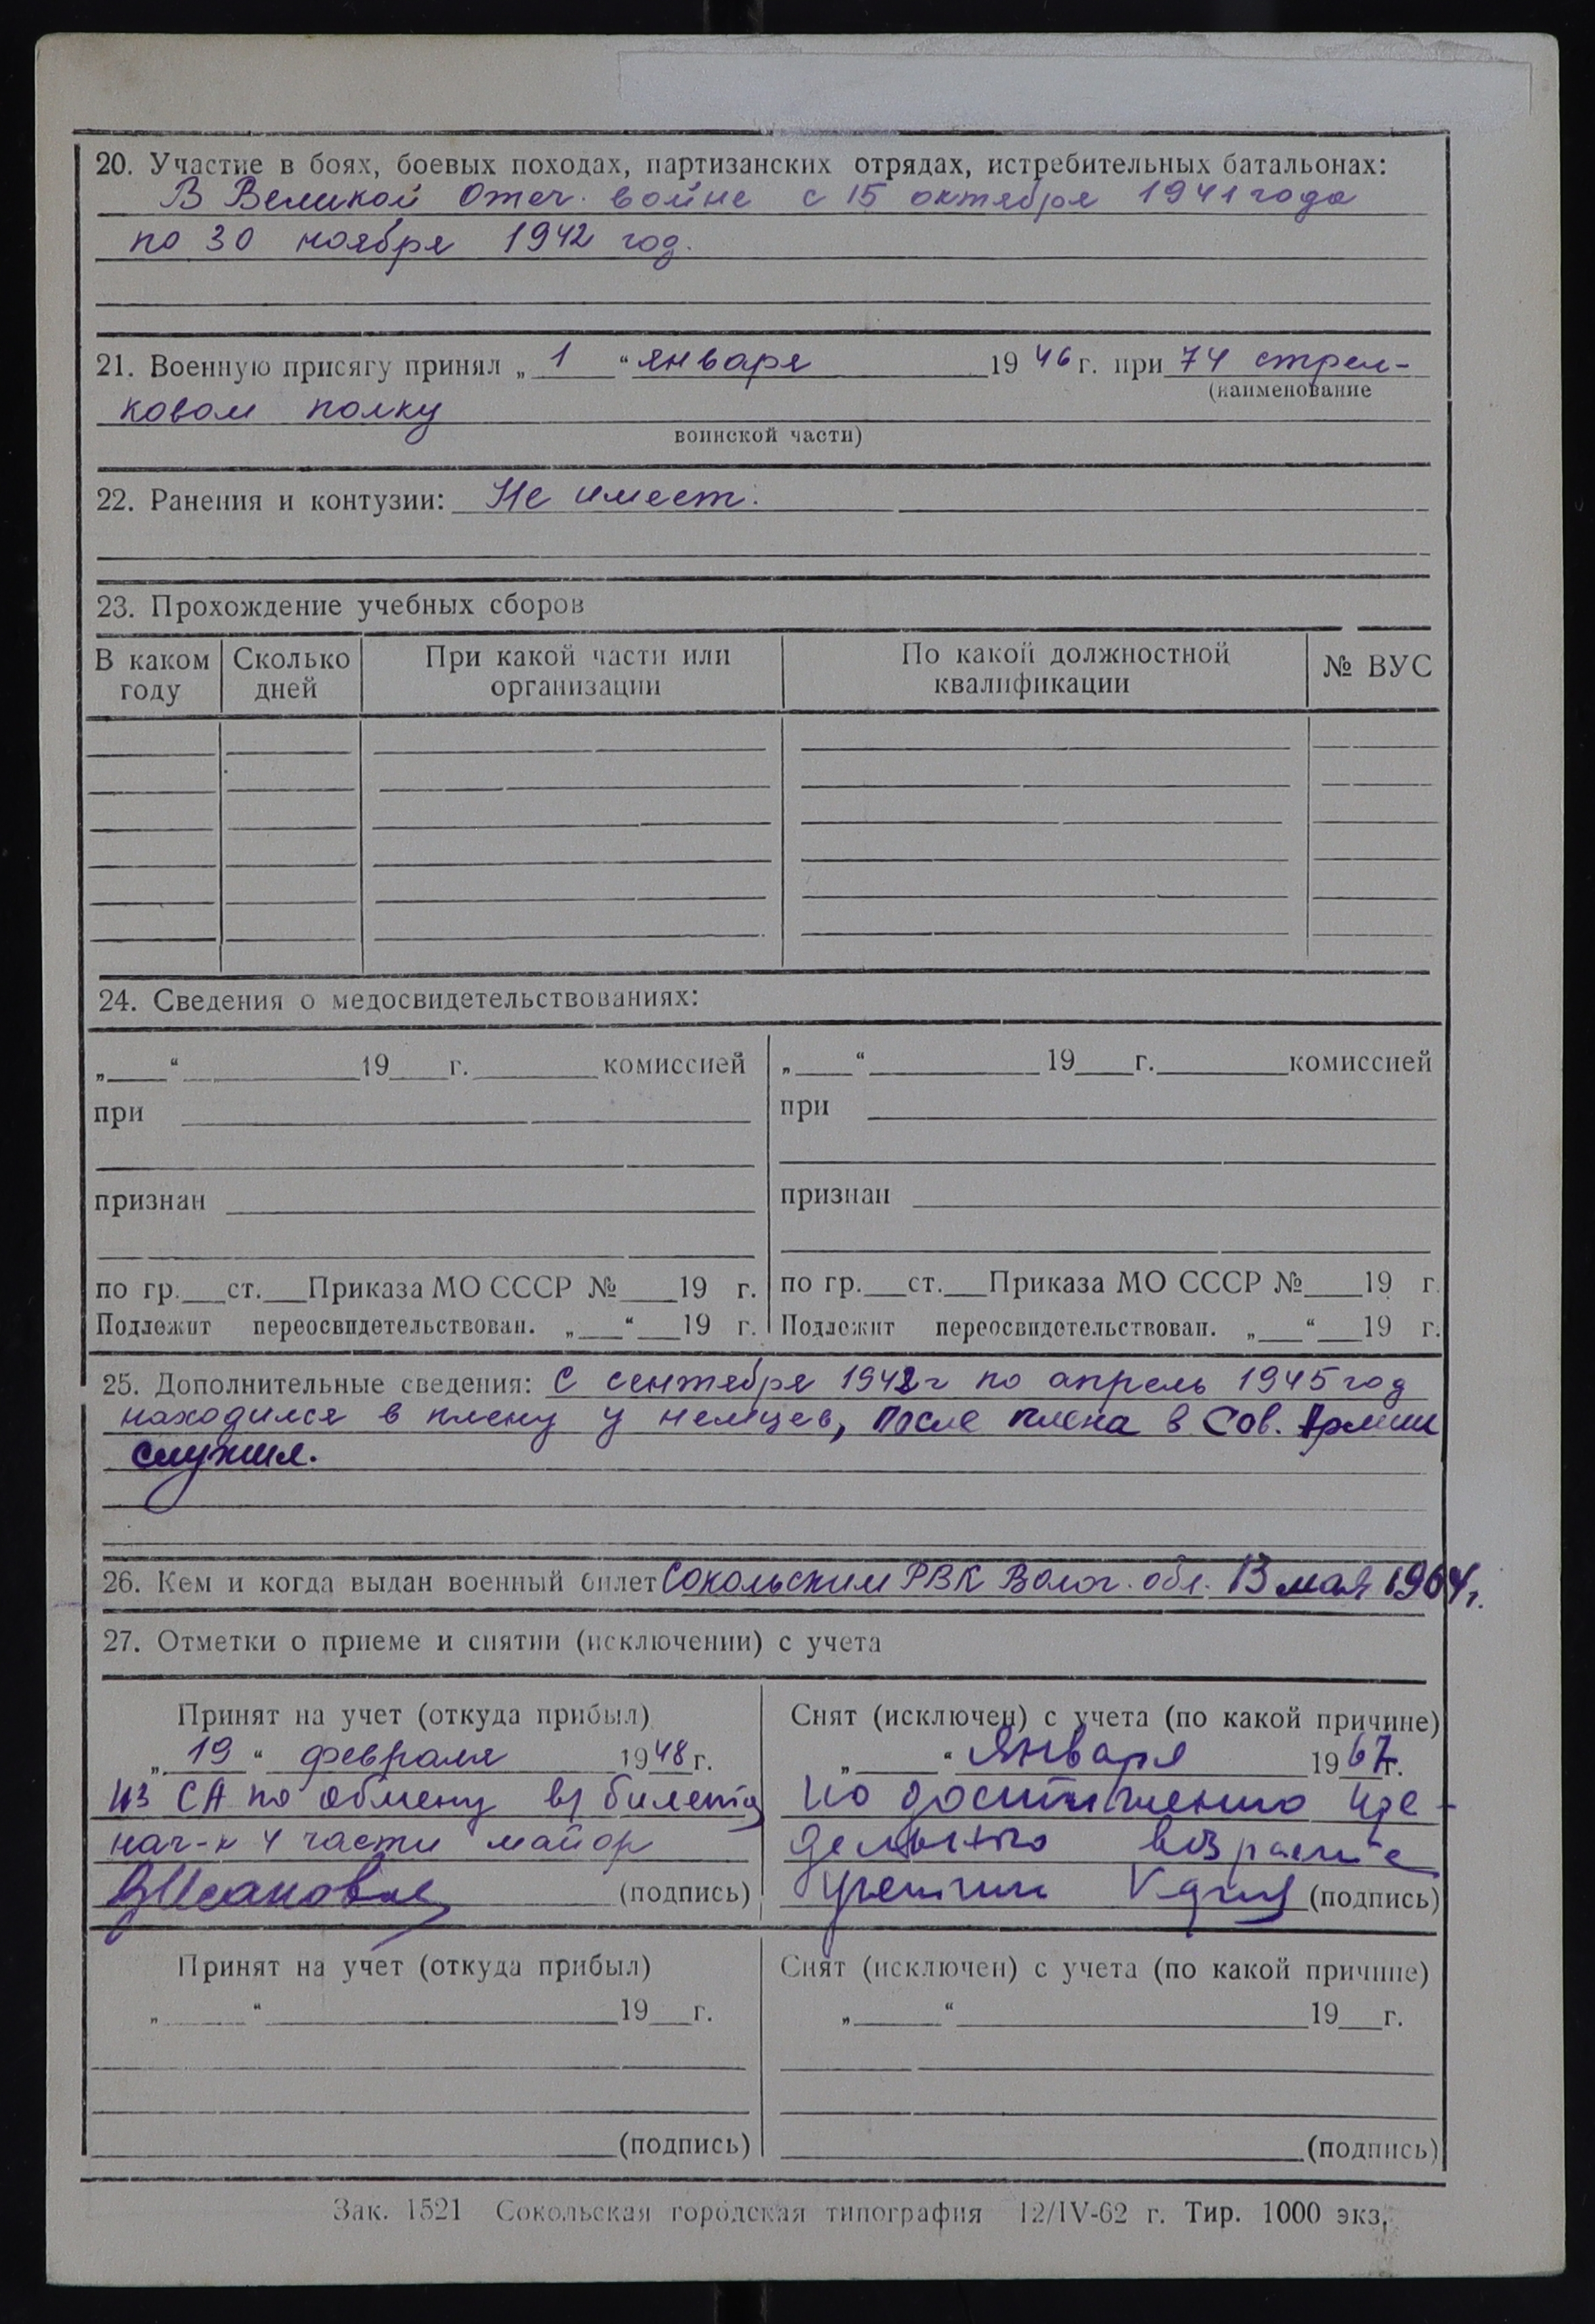 20. Участие в боях, боевых походах, партизанских отрядах, истребительных батальонах:
В Великой Отеч. войне с 15 октября 1941 года
по 30 ноября 1942 год.
21. Военную присягу принял „ 1 “ января 1946 г. при 74 стрел-
(наименование
ковом полку
воинской части)
22. Ранения и контузии: Не имеет.
23. Прохождение учебных сборов
В каком году Сколько дней При какой части или организации По какой должностной квалификации № ВУС
24. Сведения о медосвидетельствованиях:
„___“ ______ 19__г. ______ комиссией „___“ ______ 19__г. ______ комиссией
при при
признан признан
по гр.__ст.__Приказа МО СССР №__19 г. по гр.__ст.__Приказа МО СССР №__19 г.
Подлежит переосвидетельствован. „__“__19 г. Подлежит переосвидетельствован. „__“__19 г.
25. Дополнительные сведения: С сентября 1942 г по апрель 1945 год
находился в плену у немцев, после плена в Сов. Армии
служил.
26. Кем и когда выдан военный билет Сокольским РВК Волог. обл. 13 мая 1964 г.
27. Отметки о приеме и снятии (исключении) с учета
Принят на учет (откуда прибыл) Снят (исключен) с учета (по какой причине)
„ 19 “ февраля 1948 г. „___“ Января 1967 г.
из СА по обмену в/билета по достижению пре-
нач-к 4 части майор дельного возраста
(подпись) (подпись)
Принят на учет (откуда прибыл) Снят (исключен) с учета (по какой причине)
„___“ ______ 19__г. „___“ ______ 19__г.
(подпись) (подпись)
Зак. 1521 Сокольская городская типография 12/IV-62 г. Тир. 1000 экз.